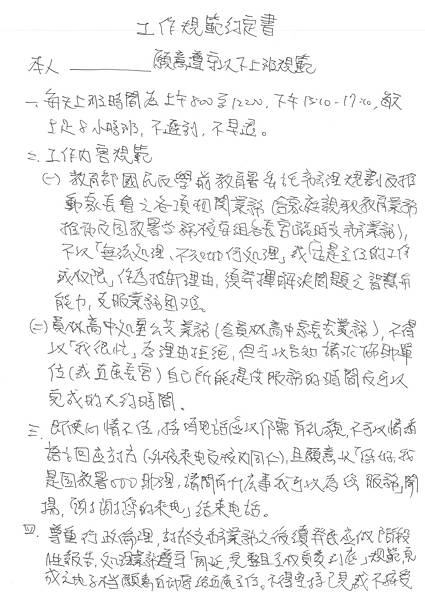 工作規範約定書
本人 願意遵守以下上班規範
一、每天上班時間為上午800至1200,下午13:10-17:10,每天
上足8小時班,不遲到,不早退。
二、工作內容規範
(一)教育部國民及學前教育署委託辦理規劃及推
動家長會之各項相關業務(含家庭訪視教育業務
推動及國教署各組室長官臨時交辦業務),
不以「無法處理、不知如何處理」或「這是主任的工作
或權限」作為推辭理由,須發揮解決問題之智慧與
能力,克服業務困境。
(二)員林高中処室公文業務(含員林高中家長會業務),不得
以「我很忙」為理由拒絕,但可以告知請求協助單
位(或直屬長官)自己所能提供服務的時間及可以
完成的大約時間。
三、即使心情不佳,接聽電話應以仍需有禮貌,不可以情緒
語言回應對方(外校來電及校內同仁),且願意以「您好,我
是國教署000助理,請問有什麼事我可以為您服務」開
場,「謝謝您的來電」結束電話。
四、尊重行政倫理,對於交辦業務之後續發展應做階段
性報告,處理業務遵守「 」規範,完
成之電子檔願意自動寄給直屬主任。不得堅持己見或不接受